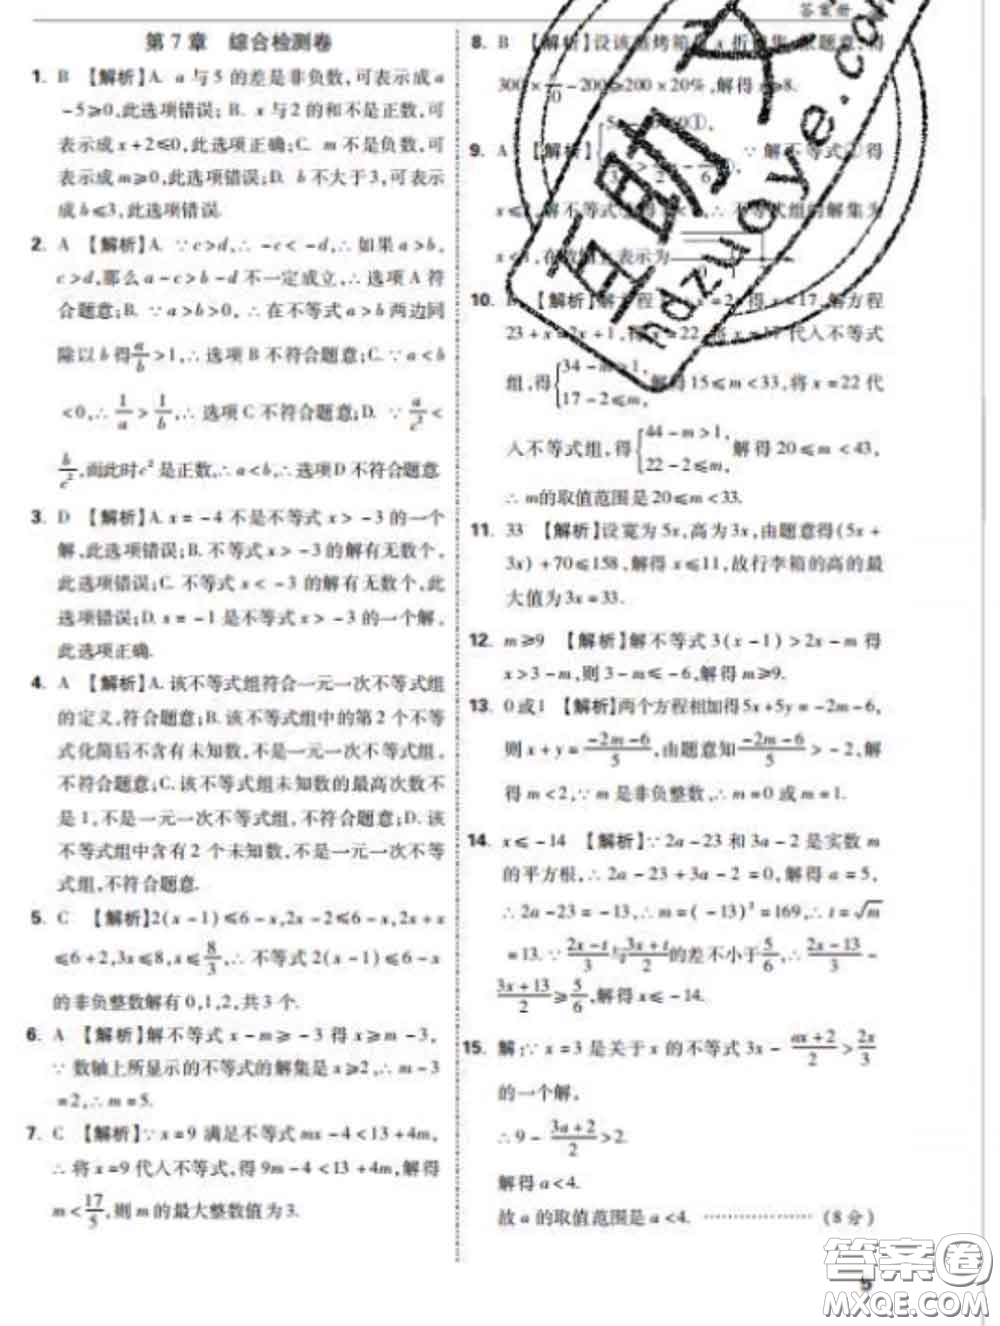 答案册
第 7 章　综合检测卷
1. B 【解析】A. a 与 5 的差是非负数,可表示成 a
-5≥0,此选项错误; B. x 与 2 的和不是正数,可
表示成 x+2≤0,此选项正确;C. m 不是负数,可
表示成 m≥0,此选项错误;D. b 不大于 3,可表示
成 b≤3,此选项错误.
2. A 【解析】A. ∵c>d,∴ -c< -d,∴ 如果 a>b,
c>d,那么 a-c>b-d 不一定成立,∴ 选项 A 符
合题意;B. ∵a>b>0,∴ 在不等式 a>b 两边同
除以 b 得 a/b >1,∴ 选项 B 不符合题意;C. ∵a<b
<0,∴ 1/a > 1/b,∴ 选项 C 不符合题意;D. ∵ a/c² <
b/c²,而此时 c² 是正数,∴a<b,∴选项 D 不符合题意
3. D 【解析】A. x= -4 不是不等式 x> -3 的一个
解,此选项错误;B. 不等式 x> -3 的解有无数个,
此选项错误;C. 不等式 x< -3 的解有无数个,此
选项错误;D. x= -1 是不等式 x> -3 的一个解,
此选项正确.
4. A 【解析】A. 该不等式组符合一元一次不等式组
的定义,符合题意;B. 该不等式组中的第 2 个不等
式化简后不含有未知数,不是一元一次不等式组,
不符合题意;C. 该不等式组未知数的最高次数不
是 1,不是一元一次不等式组,不符合题意;D. 该
不等式组中含有 2 个未知数,不是一元一次不等
式组,不符合题意.
5. C 【解析】2(x-1)≤6-x,2x-2≤6-x,2x+x
≤6+2,3x≤8,x≤8/3,∴ 不等式 2(x-1)≤6-x
的非负整数解有 0,1,2,共 3 个.
6. A 【解析】解不等式 x-m≥ -3 得 x≥m-3,
∵ 数轴上所显示的不等式的解集是 x≥2,∴m-3
=2,∴m=5.
7. C 【解析】∵x=9 满足不等式 mx-4<13+4m,
∴ 将 x=9 代入不等式,得 9m-4<13+4m,解得
m<17/5,则 m 的最大整数值为 3.
8. B 【解析】设该 烤箱 x 折 集 题意,得
300× /10 -200≥200×20%,解得 x≥8.
9. A 【解析】 ①, ∵ 解不等式 得
x≤ 解不等式 得 不等式组的解集为
x≤ 在数轴 表示为
10. B 【解析】解方程 x=2 得 x=17,解方程
23+x=2x+1,得 x=22,将 x=17 代入不等式
组,得 { 34-m>1, 17-2≤m, 解得 15≤m<33,将 x=22 代
入不等式组,得 { 44-m>1, 22-2≤m, 解得 20≤m<43,
∴m的取值范围是 20≤m<33.
11. 33 【解析】设宽为 5x,高为 3x,由题意得(5x+
3x)+70≤158,解得 x≤11,故行李箱的高的最
大值为 3x=33.
12. m≥9 【解析】解不等式 3(x-1)>2x-m 得
x>3-m,则 3-m≤ -6,解得 m≥9.
13. 0 或 1 【解析】两个方程相加得 5x+5y= -2m-6,
则 x+y= (-2m-6)/5,由题意知 (-2m-6)/5 > -2,解
得 m<2,∵m 是非负整数,∴m=0 或 m=1.
14. x≤ -14 【解析】∵2a-23 和 3a-2 是实数 m
的平方根,∴ 2a-23+3a-2=0,解得 a=5,
∴2a-23= -13,∴m=( -13)²=169,∴t=√m
=13. ∵ (2x-t)/3 与 (3x+t)/2 的差不小于 5/6,∴ (2x-13)/3 -
(3x+13)/2 ≥ 5/6,解得 x≤ -14.
15. 解:∵x=3 是关于 x 的不等式 3x- (ax+2)/2 > 2x/3
的一个解,
∴9- (3a+2)/2 >2.
解得 a<4.
故 a 的取值范围是 a<4. ……………… (8 分)
5
互助文
hdzuoye.com
答案圈
MXQE.COM